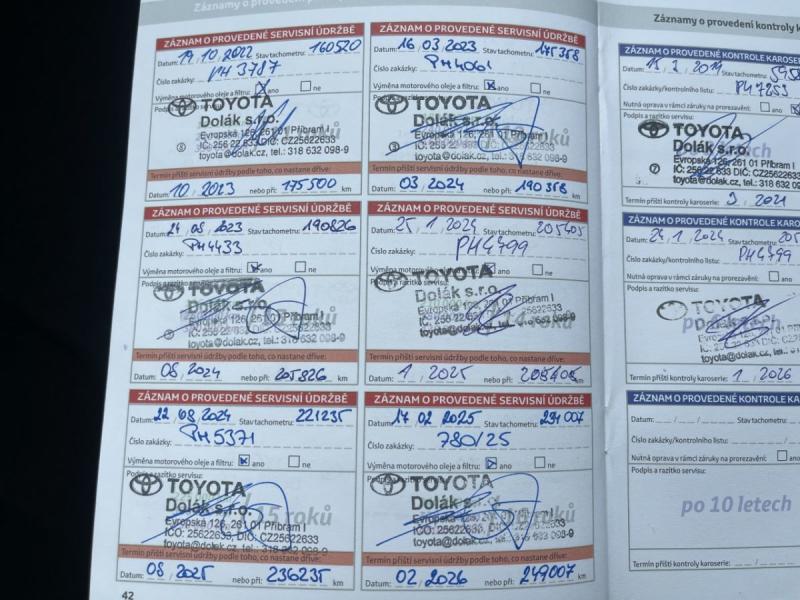 Záznamy o provedení
ZÁZNAM O PROVEDENÉ SERVISNÍ ÚDRŽBĚ
Datum: 19/10/2022 Stav tachometru: 160520
Číslo zakázky: PH 3787
Výměna motorového oleje a filtru: ano ne
TOYOTA
Dolák s.r.o.
Evropská 126, 261 01 Příbram I
IČ: 256 22 633 DIČ: CZ25622633
toyota@dolak.cz, tel.: 318 632 098-9
Termín příští servisní údržby podle toho, co nastane dříve:
Datum: 10/2023 nebo při: 175500 km
ZÁZNAM O PROVEDENÉ SERVISNÍ ÚDRŽBĚ
Datum: 16/03/2023 Stav tachometru: 175358
Číslo zakázky: PH4061
Výměna motorového oleje a filtru: ano ne
TOYOTA
Dolák s.r.o.
Evropská 126, 261 01 Příbram I
toyota@dolak.cz, tel.: 318 632 098-9
Termín příští servisní údržby podle toho, co nastane dříve:
Datum: 03/2024 nebo při: 190358 km
ZÁZNAM O PROVEDENÉ SERVISNÍ ÚDRŽBĚ
Datum: 24/08/2023 Stav tachometru: 190826
Číslo zakázky: PH4433
Výměna motorového oleje a filtru: ano ne
Podpis a razítko servisu:
TOYOTA
Dolák s.r.o.
Evropská 126, 261 01 Příbram I
IČ: 256 22 633 DIČ: CZ25622633
toyota@dolak.cz, tel.: 318 632 098-9
Termín příští servisní údržby podle toho, co nastane dříve:
Datum: 08/2024 nebo při: 205826 km
ZÁZNAM O PROVEDENÉ SERVISNÍ ÚDRŽBĚ
Datum: 25/1/2024 Stav tachometru: 205405
Číslo zakázky: PH4799
Výměna motorového oleje a filtru: ano ne
TOYOTA
Dolák s.r.o.
Evropská 126, 261 01 Příbram I
toyota@dolak.cz, tel.: 318 632 098-9
Termín příští servisní údržby podle toho, co nastane dříve:
Datum: 1/2025 nebo při: km
ZÁZNAM O PROVEDENÉ SERVISNÍ ÚDRŽBĚ
Datum: 22/08/2024 Stav tachometru: 221235
Číslo zakázky: PH5371
Výměna motorového oleje a filtru: ano ne
Podpis a razítko servisu:
TOYOTA
Dolák s.r.o. 15 roků
Evropská 126, 261 01 Příbram I
IČO: 25622633, DIČ: CZ25622633
toyota@dolak.cz, tel.: 318 632 098-9
Termín příští servisní údržby podle toho, co nastane dříve:
Datum: 08/2025 nebo při: 236235 km
ZÁZNAM O PROVEDENÉ SERVISNÍ ÚDRŽBĚ
Datum: 17/02/2025 Stav tachometru: 007
Číslo zakázky: 780/25
Výměna motorového oleje a filtru: ano ne
Podpis a razítko servisu:
TOYOTA
Dolák s.r.o.
Evropská 126, 261 01 Příbram I
IČO: 25622633, DIČ: CZ25622633
toyota@dolak.cz, tel.: 318 632 098-9
Termín příští servisní údržby podle toho, co nastane dříve:
Datum: 02/2026 nebo při: 249007 km
42
Záznamy o provedení kontroly k
ZÁZNAM O PROVEDENÉ KONTROLE KAROSER
Datum: Stav tachometru:
Číslo zakázky/kontrolního listu: PH7253
Nutná oprava v rámci záruky na prorezavění: ano
Podpis a razítko servisu:
TOYOTA
Dolák s.r.o.
Evropská 126, 261 01 Příbram I
IČ: 256 22 633 DIČ: CZ256226
toyota@dolak.cz, tel.: 318 632 09
Termín příští kontroly karoserie: 2021
ZÁZNAM O PROVEDENÉ KONTROLE KARO
Datum: 1/2024 Stav tachometru: 205
Číslo zakázky/kontrolního listu: PH4799
Nutná oprava v rámci záruky na prorezavění: ano
Podpis a razítko servisu:
TOYOTA
Dolák s.r.o.
Evropská 126, 261 01 Příbram
toyota@dolak.cz, tel.: 318 632
Termín příští kontroly karoserie: 1/2026
ZÁZNAM O PROVEDENÉ KONTROLE KA
Datum: / / Stav tachometru:
Číslo zakázky/kontrolního listu:
Nutná oprava v rámci záruky na prorezavění: ano
Podpis a razítko servisu:
po 10 letech
Termín příští kontroly karoserie: /